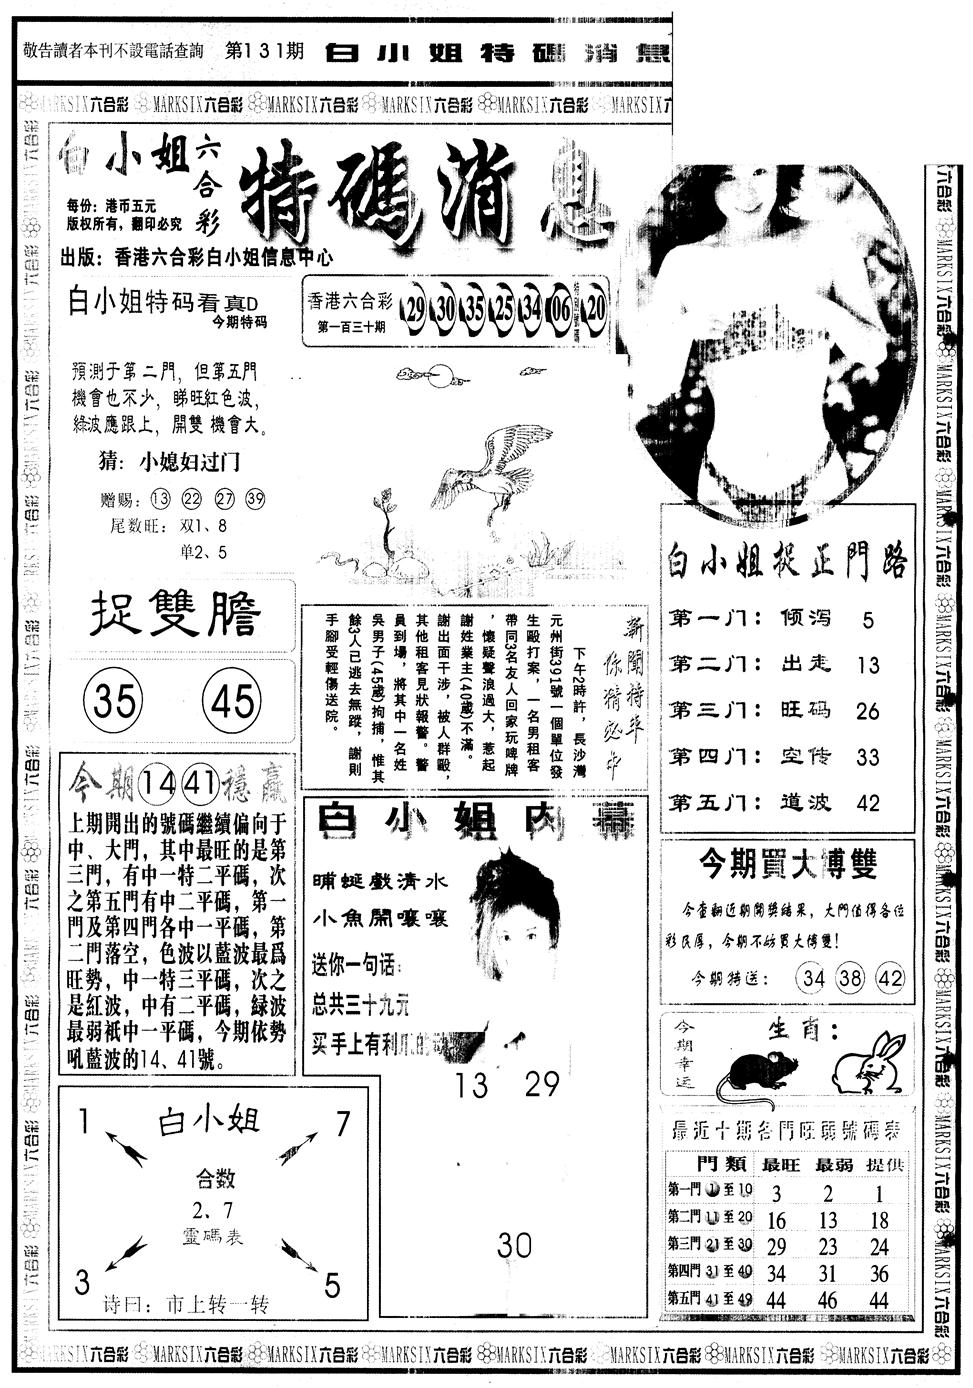 敬告讀者本刊不設電話查詢 第131期 白小姐特碼消息
MARKSIX六合彩 MARKSIX六合彩 MARKSIX六合彩 MARKSIX六合彩 MARKSIX六合彩 MARKSIX
白小姐六合彩 特碼消息
每份：港币五元
版权所有，翻印必究
出版：香港六合彩白小姐信息中心
白小姐特码看真D
今期特码
預測于第二門，但第五門
機會也不少，睇旺紅色波，
綠波應跟上，開雙機會大。
猜：小媳妇过门
赠赐：13 22 27 39
尾数旺：双1、8
单2、5
香港六合彩
第一百三十期
29 30 35 25 34 06 20
捉雙膽
35 45
新聞特平
你猜必中
下午2時許，長沙灣
元州街391號一個單位發
生毆打案，一名男租客
帶同3名友人回家玩啤牌
，懷疑聲浪過大，惹起
謝姓業主(40歲)不滿。
謝出面干涉，被人群毆，
其他租客見狀報警。警
員到場，將其中一名姓
吳男子(45歲)拘捕，惟其
餘3人已逃去無蹤，謝則
手腳受輕傷送院。
白小姐捉正門路
第一门：倾泻 5
第二门：出走 13
第三门：旺码 26
第四门：空传 33
第五门：道波 42
今期14 41穩贏
上期開出的號碼繼續偏向于
中、大門，其中最旺的是第
三門，有中一特二平碼，次
之第五門有中二平碼，第一
門及第四門各中一平碼，第
二門落空，色波以藍波最爲
旺勢，中一特三平碼，次之
是紅波，中有二平碼，緑波
最弱衹中一平碼，今期依勢
吼藍波的14、41號。
白小姐内幕
晡蜒戲清水
小魚開嚷嚷
送你一句话：
总共三十九元
买手上有利
13 29
30
今期買大博雙
今查翻近期開獎結果，大門值得各位
彩民厚，今期不妨買大博雙！
今期特送： 34 38 42
今期幸运
生肖：
最近十期各門旺弱號碼表
門類 最旺 最弱 提供
第一門1至10 3 2 1
第二門11至20 16 13 18
第三門21至30 29 23 24
第四門31至40 34 31 36
第五門41至49 44 46 44
1 白小姐 7
合数
2、7
靈碼表
3 5
诗曰：市上转一转
MARKSIX六合彩 MARKSIX六合彩 MARKSIX六合彩 MARKSIX六合彩 MARKSIX六合彩 MARKSIX六合彩 MARKSIX六合彩 MARKSIX六合彩